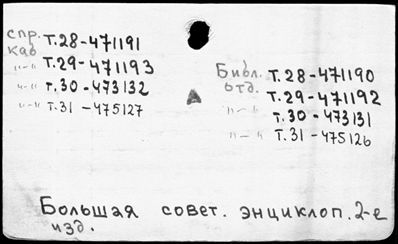 спр. Т.28-471191
каб
"-" Т.29-471193
"-" Т.30-473132
"-" Т.31-475127
Библ. Т.28-471190
отд. Т.29-471192
Т.30-473131
"-" Т.31-475126
Большая совет. энциклоп. 2-е
изд.